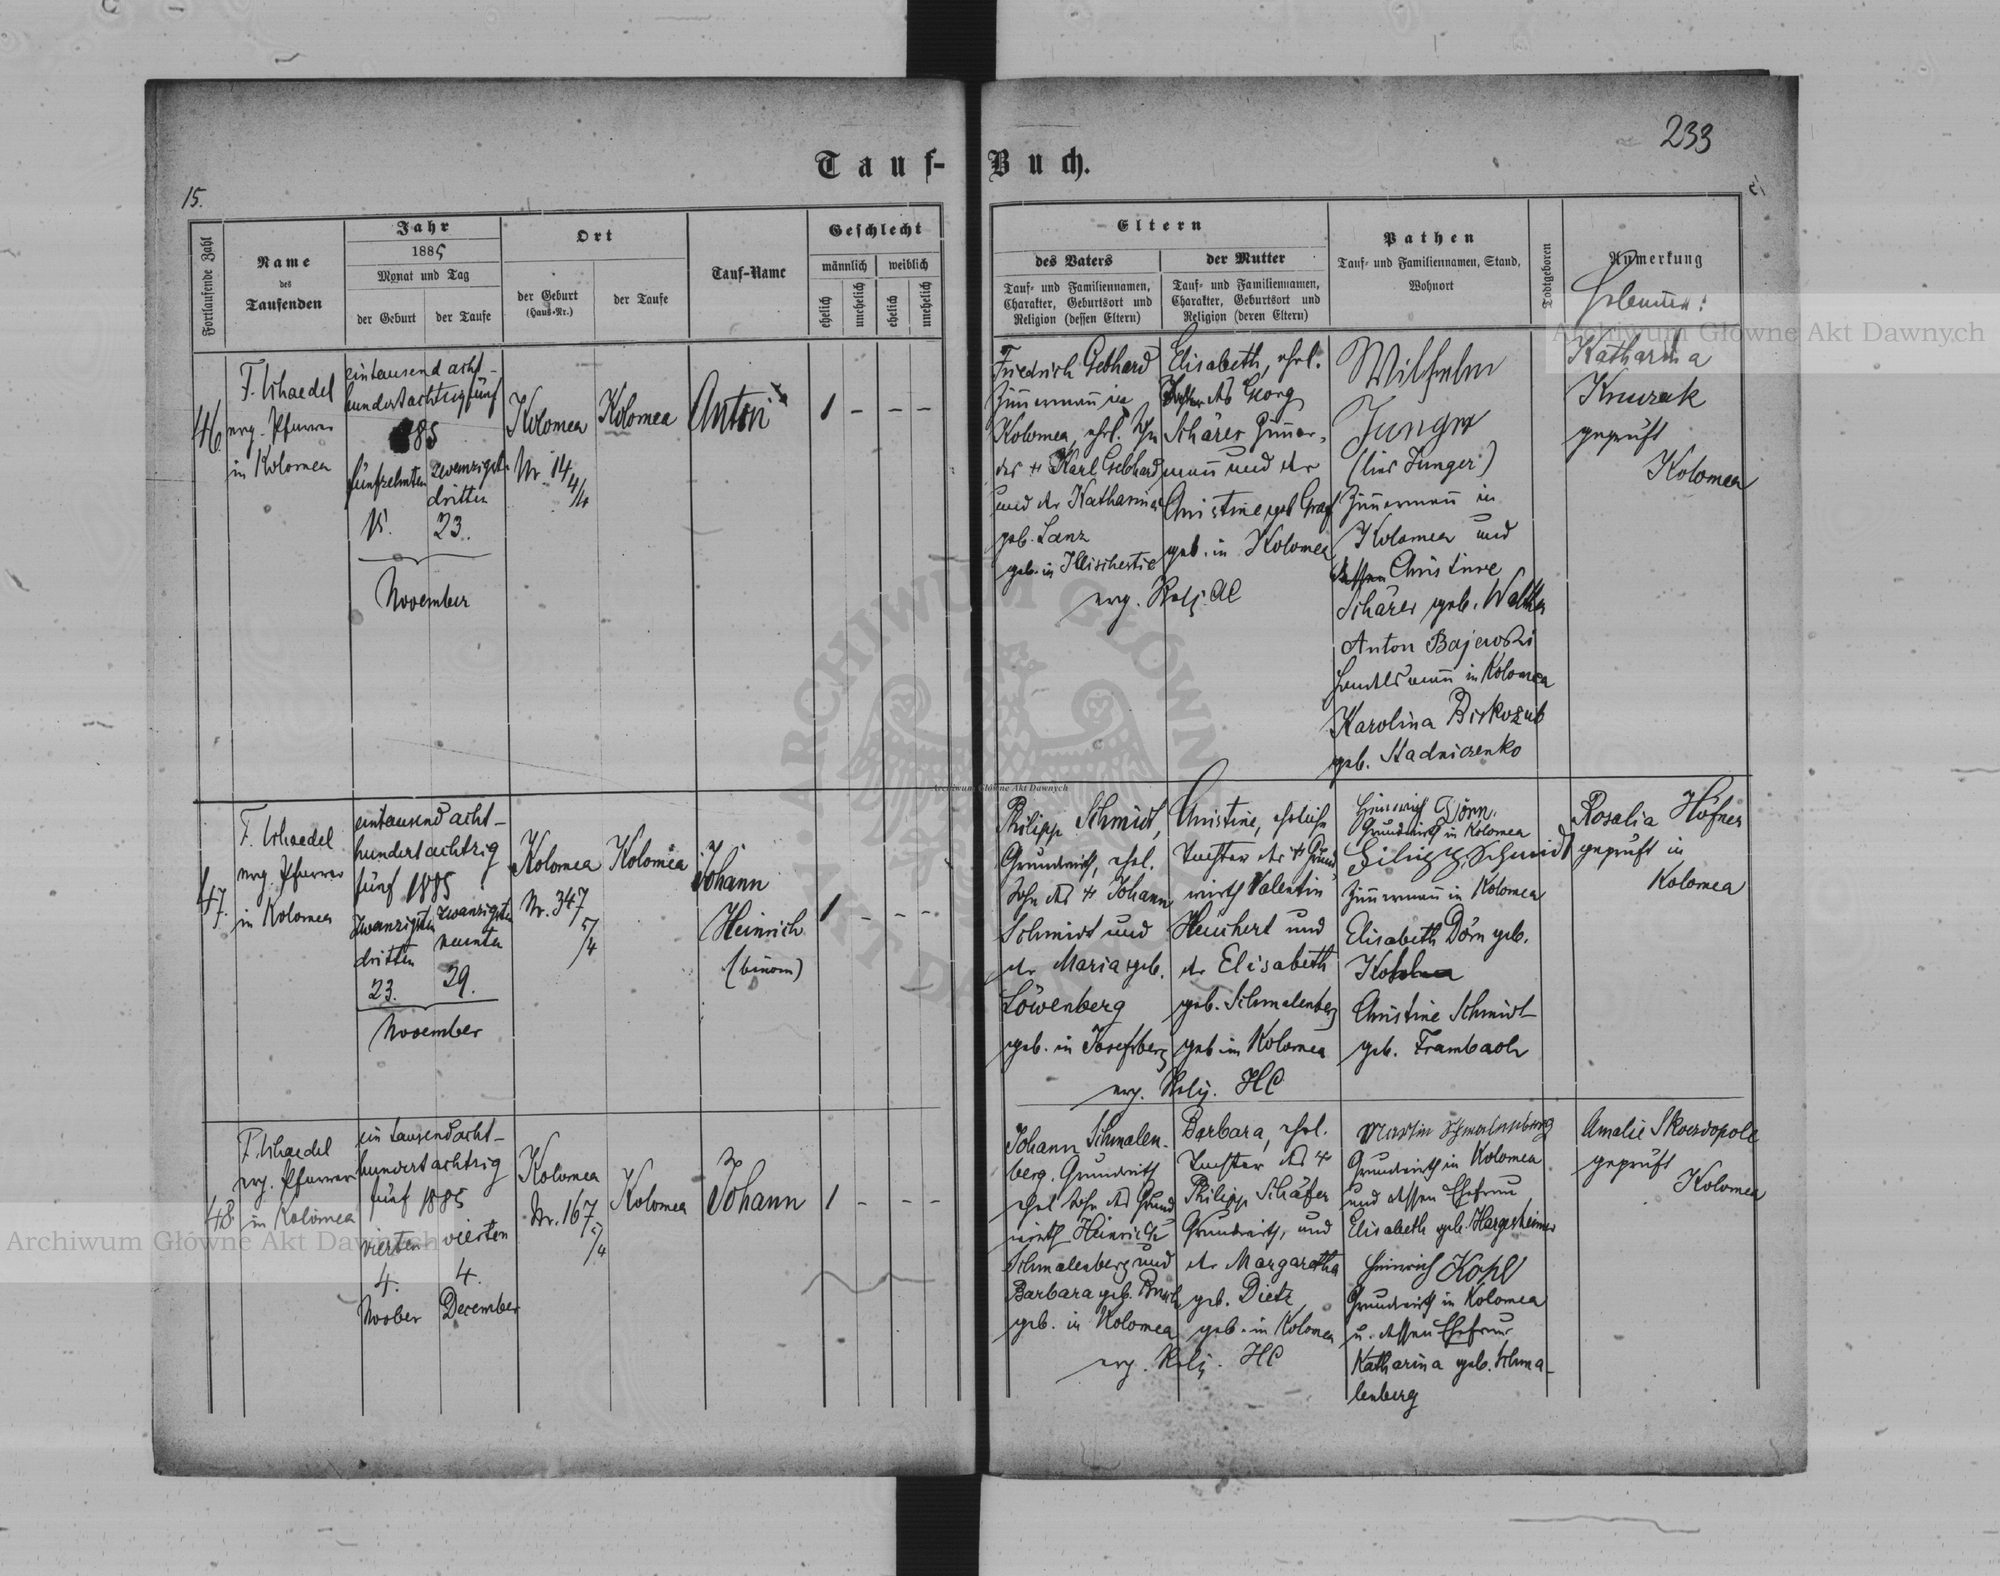 233
Tauf-Buch.
15.
Fortlaufende Zahl
Name
des
Taufenden
Jahr
1885
Monat und Tag
der Geburt
der Taufe
Ort
der Geburt
(Haus-Nr.)
der Taufe
Tauf-Name
Geschlecht
männlich
weiblich
ehelich
unehelich
ehelich
unehelich
Eltern
des Vaters
Tauf- und Familiennamen,
Charakter, Geburtsort und
Religion (dessen Eltern)
der Mutter
Tauf- und Familiennamen,
Charakter, Geburtsort und
Religion (deren Eltern)
Pathen
Tauf- und Familiennamen, Stand,
Wohnort
Todtgeboren
Anmerkung
46.
F. Schaedel
evg. Pfarrer
in Kolomea
eintausend acht-
hundertachtzigfünf
1885
fünfzehnten
15.
zwanzigst
dritten
23.
November
Kolomea
Nr. 14
4/4
Kolomea
Anton
1 - - -
Friedrich Gebhard
Zimmermann in
Kolomea, ehel. Sohn
des + Karl Gebhard
und der Katharina
geb. Lanz
geb. in Illischestie
Elisabeth, ehel.
Tochter des Georg
Schärer Zimmer-
mann und der
Christine geb Graf
geb. in Kolomea
evg. Relig. AC
Wilhelm
Junger
(lies Junger)
Zimmermann in
Kolomea und
dessen Christine
Schärer geb. Walter
Anton Bajewski
Handelsmann in Kolomea
Karolina Biskozub
geb. Stadniczenko
Katharina
geprüft
Kolomea
47.
F. Schaedel
evg. Pfarrer
in Kolomea
eintausend acht-
hundertachtzig
fünf 1885
zwanzigsten
dritten
23.
zwanzigsten
neunten
29.
November
Kolomea
Nr. 347
5/4
Kolomea
Johann
Heinrich
(binom)
1 - - -
Philipp Schmidt,
Grundwirth, ehel.
Sohn des + Johann
Schmidt und
der Maria geb.
Löwenberg
geb. in Josefsberg
Christine, eheliche
Tochter des + Grund
wirth Valentin
Heuchert und
der Elisabeth
geb. Schmalenberg
geb in Kolomea
evg. Relig. HC
Heinrich Dörn.
Grundwirth in Kolomea
Philipp Schmidt
Zimmermann in Kolomea
Elisabeth Dörn geb.
Christine Schmidt
geb. Frambach
Rosalia Höfner
geprüft in
Kolomea
48.
F. Schaedel
evg. Pfarrer
in Kolomea
ein tausendacht-
hundertachtzig
fünf 1885
vierten
4.
Novber
vierten
4.
December
Kolomea
Nr. 167
5/4
Kolomea
Johann
1 - - -
Johann Schmalen-
berg, Grundwirth
ehel Sohn des Grund
wirth Heinrich
Schmalenberg und
Barbara geb.
geb. in Kolomea
Barbara, ehel.
Tochter des +
Philipp Schäfer
Grundwirth, und
der Margaretha
geb. Dietz
geb. in Kolomea
evg. Relig. HC
Martin Schmalenberg
Grundwirth in Kolomea
und dessen Ehefrau
Elisabeth geb. Hargesheimer
Heinrich Kohl
Grundwirth in Kolomea
u. dessen Ehefrau
Katharina geb. Schma-
lenberg
Amalie Skwedopole
geprüft
Kolomea
Archiwum Główne Akt Dawnych
Archiwum Główne Akt Dawnych
Archiwum Główne Akt Dawnych